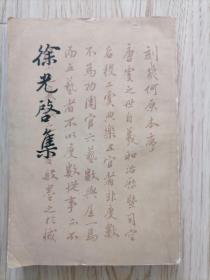 徐光啓集
刻幾何原本序
唐虞之世自羲和治曆暨司空
后稷工虞典樂五官者非度數
不為功周官六藝數與居一焉
而五藝者不以度數從事亦不
般墨之於械